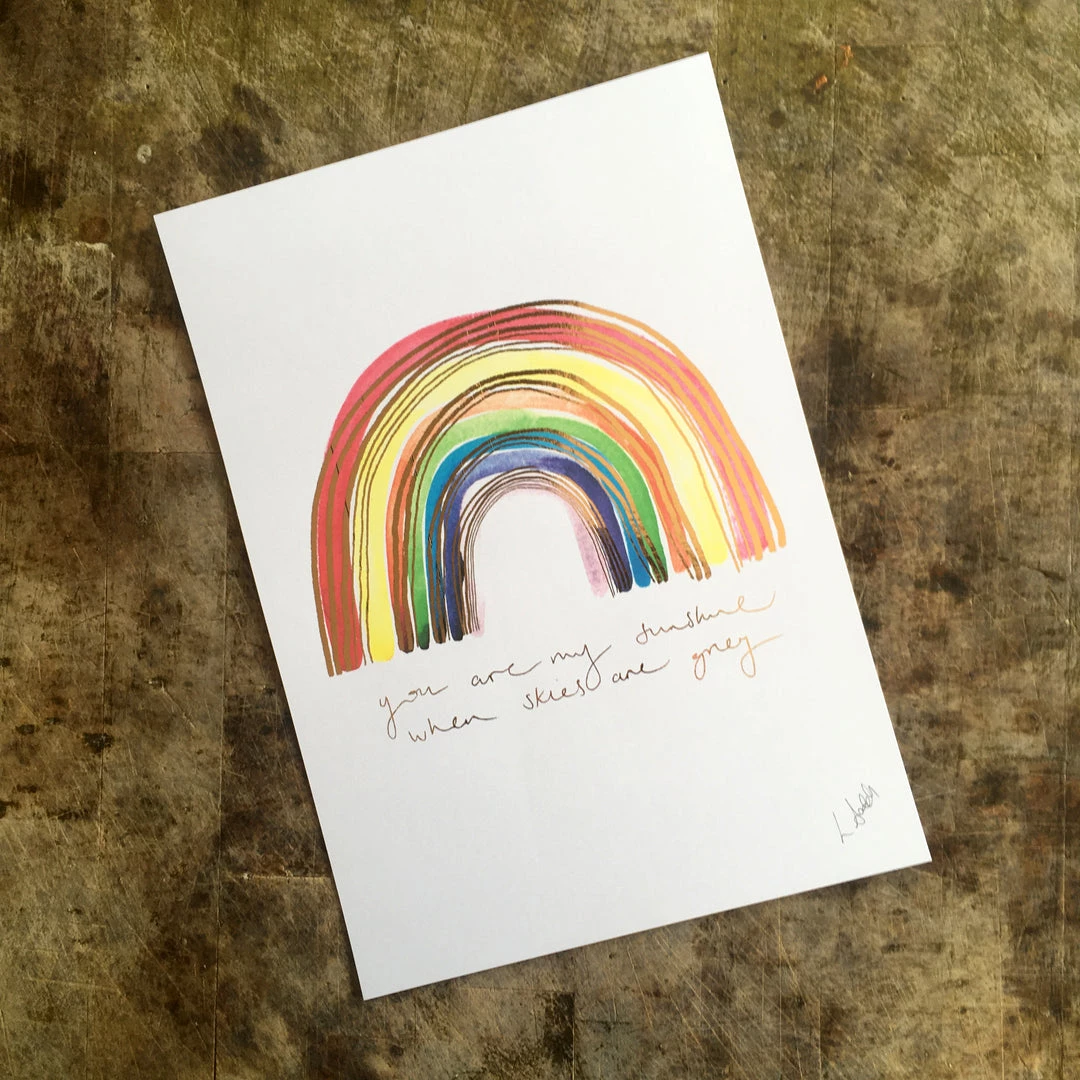 you are my sunshine
when skies are grey
L